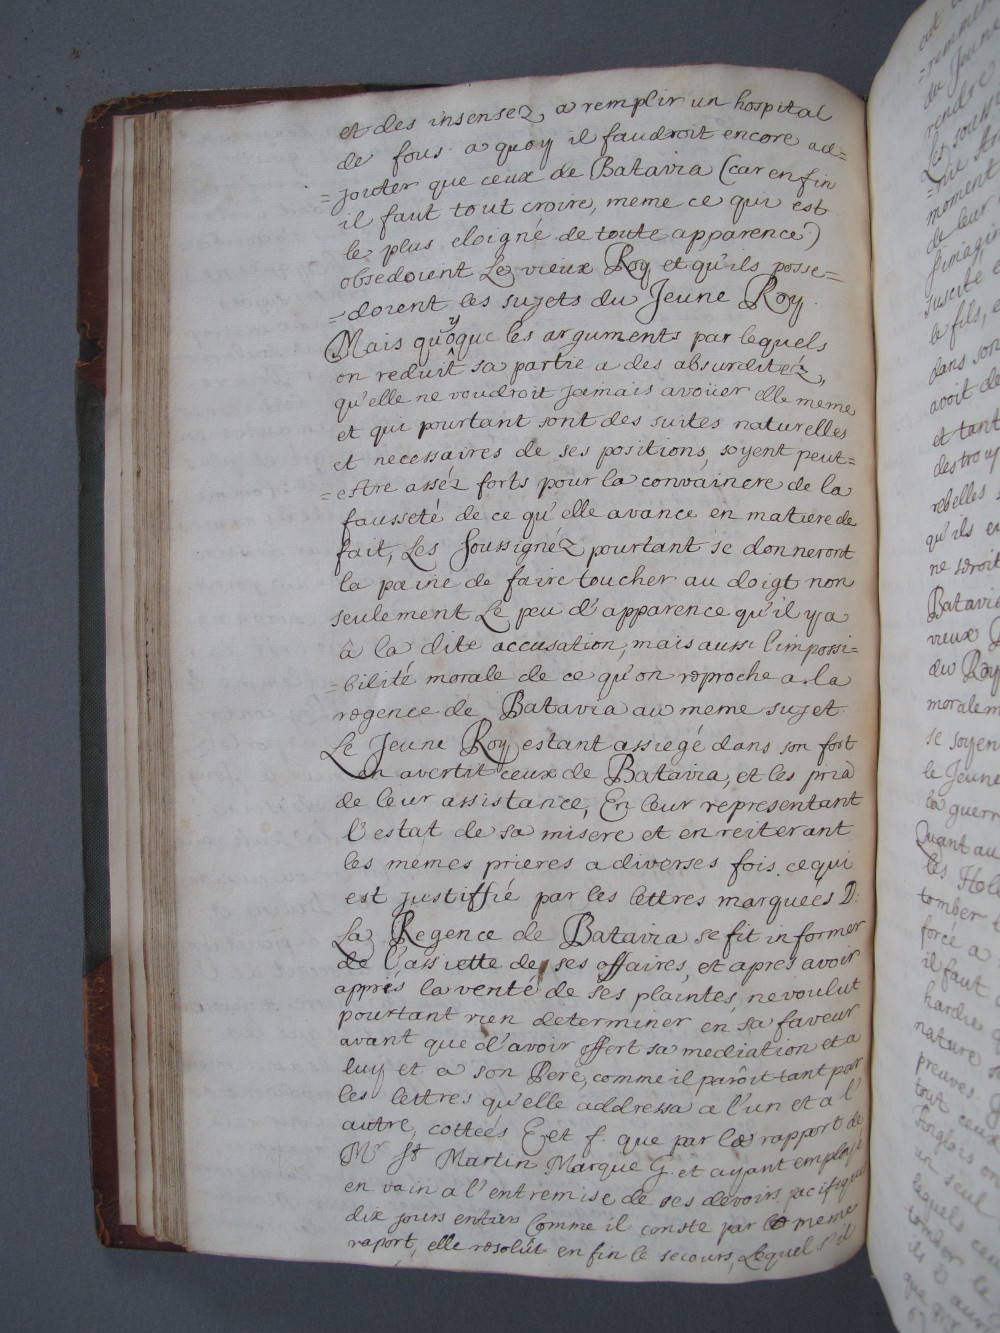 et des insensez, a remplir un hospital
de fous. a quoy il faudroit encore ad=
=jouter que ceux de Batavia (car en fin
il faut tout croire, meme ce qui est
le plus eloigné de toute apparence)
obsedoient Le vieux Roy et qu'ils posse=
=doient les sujets du Jeune Roy.
Mais quoyque les arguments par lequels
on reduit sa partie a des absurditéz,
qu'elle ne voudroit jamais avoüer elle meme
et qui pourtant sont des suites naturelles
et necessaires de ses positions, soyent peut=
=estre asséz forts pour la convaincre de la
fausseté de ce qu'elle avance en matiere de
fait, Les Soussignéz pourtant se donneront
la paine de faire toucher au doigt non
seulement Le peu d'apparence qu'il y a
à la dite accusation, mais aussi l'impossi=
=bilité morale de ce qu'on reproche a la
regence de Batavia au meme sujet.
Le Jeune Roy estant assiegé dans son fort
en avertit ceux de Batavia, et les pria
de leur assistance, En leur representant
l'estat de sa misere et en reiterant
les mémes prieres a diverses fois. ce qui
est justiffié par les lettres marquées D.
La Regence de Batavia se fit informer
de l'assiette de ses affaires, et apres avoir
appris la verité de ses plaintes, ne voulut
pourtant rien determiner en sa faveur
avant que d'avoir offert sa mediation et a
luy et a son Pere, comme il paroit tant par
les lettres qu'elle addressa a l'un et a l'
autre, cottées E, et f. que par le rapport de
Mr St Martin Marque G. et ayant employé
en vain a l'entremise de ses devoirs pacifique
dix jours entiers Comme il conste par le meme
raport, elle resolut en fin le secours, Lequel s'il